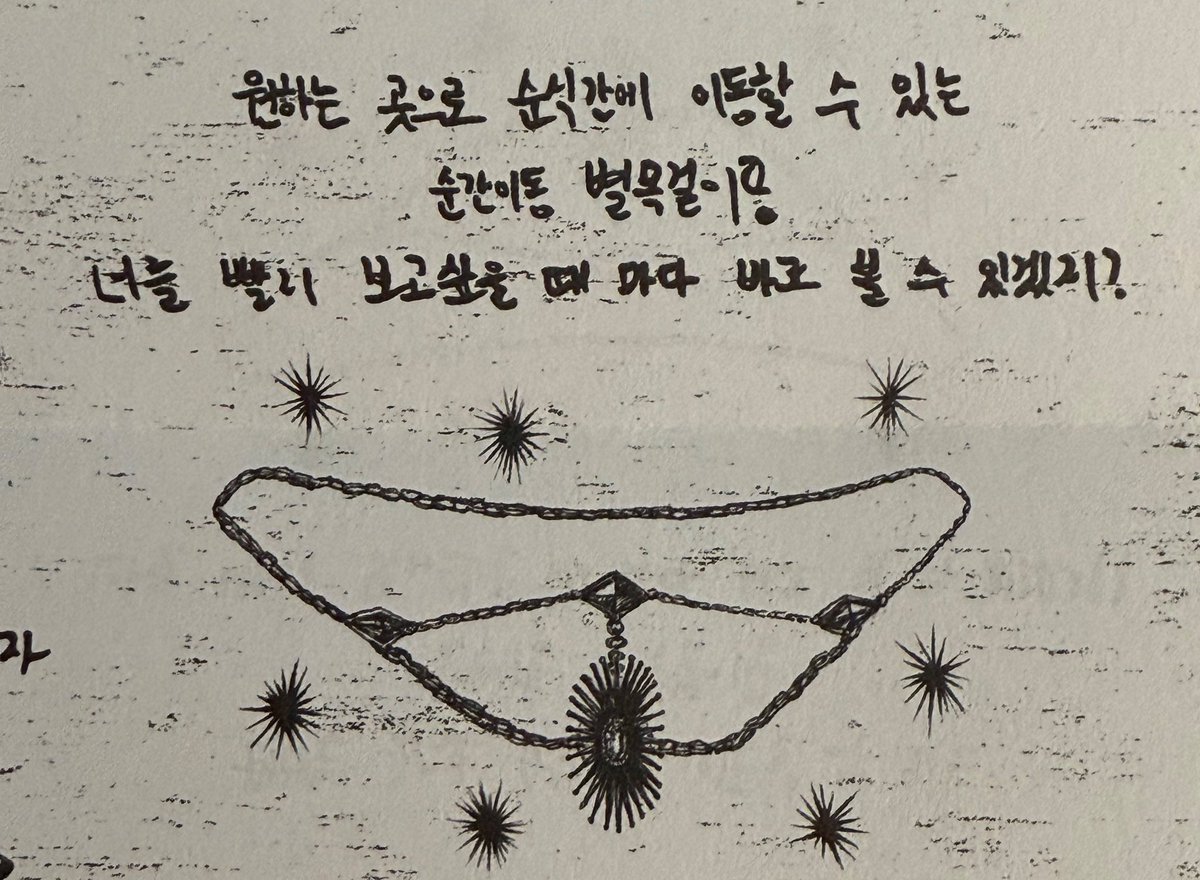 원하는 곳으로 순식간에 이동할 수 있는
순간이동 별목걸이
너희를 빨리 보고싶을 때 마다 바로 볼 수 있겠지?
자